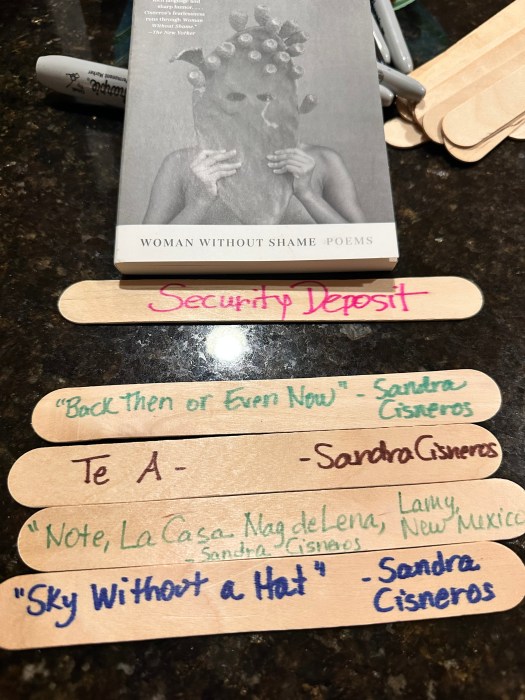 sharp humor...
Cisneros's fearlessness
runs through Woman
Without Shame."
—The New Yorker
WOMAN WITHOUT SHAME POEMS
Security Deposit
"Back Then or Even Now" - Sandra
Cisneros
Te A - - Sandra Cisneros
"Note, La Casa Magdelena, Lamy,
New Mexico
- Sandra Cisneros
"Sky Without a Hat" - Sandra
Cisneros